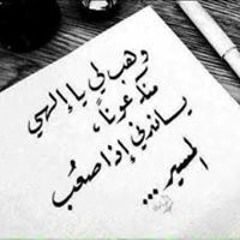 وهب لي يا إلهي
منك عونًا،
يساندني إذا صعُب
المسير...